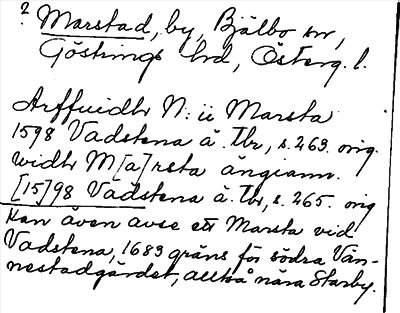 ? Marstad, by, Bjälbo sn,
Göstrings hd, Österg. l.
Arffuidh N: ii Marsta
1598 Vadstena ä. tbr, s. 263. orig.
widh M[a]rsta ängiann.
[15]98 Vadstena ä. tbr, s. 265. orig
Kan även avse ett Marsta vid
Vadstena, 1683 gräns för södra Vän-
nestadgärdet, alltså nära Starby.